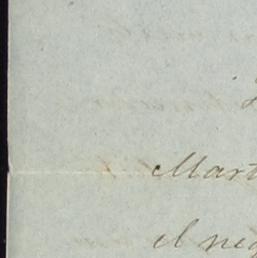 Mart
el neg